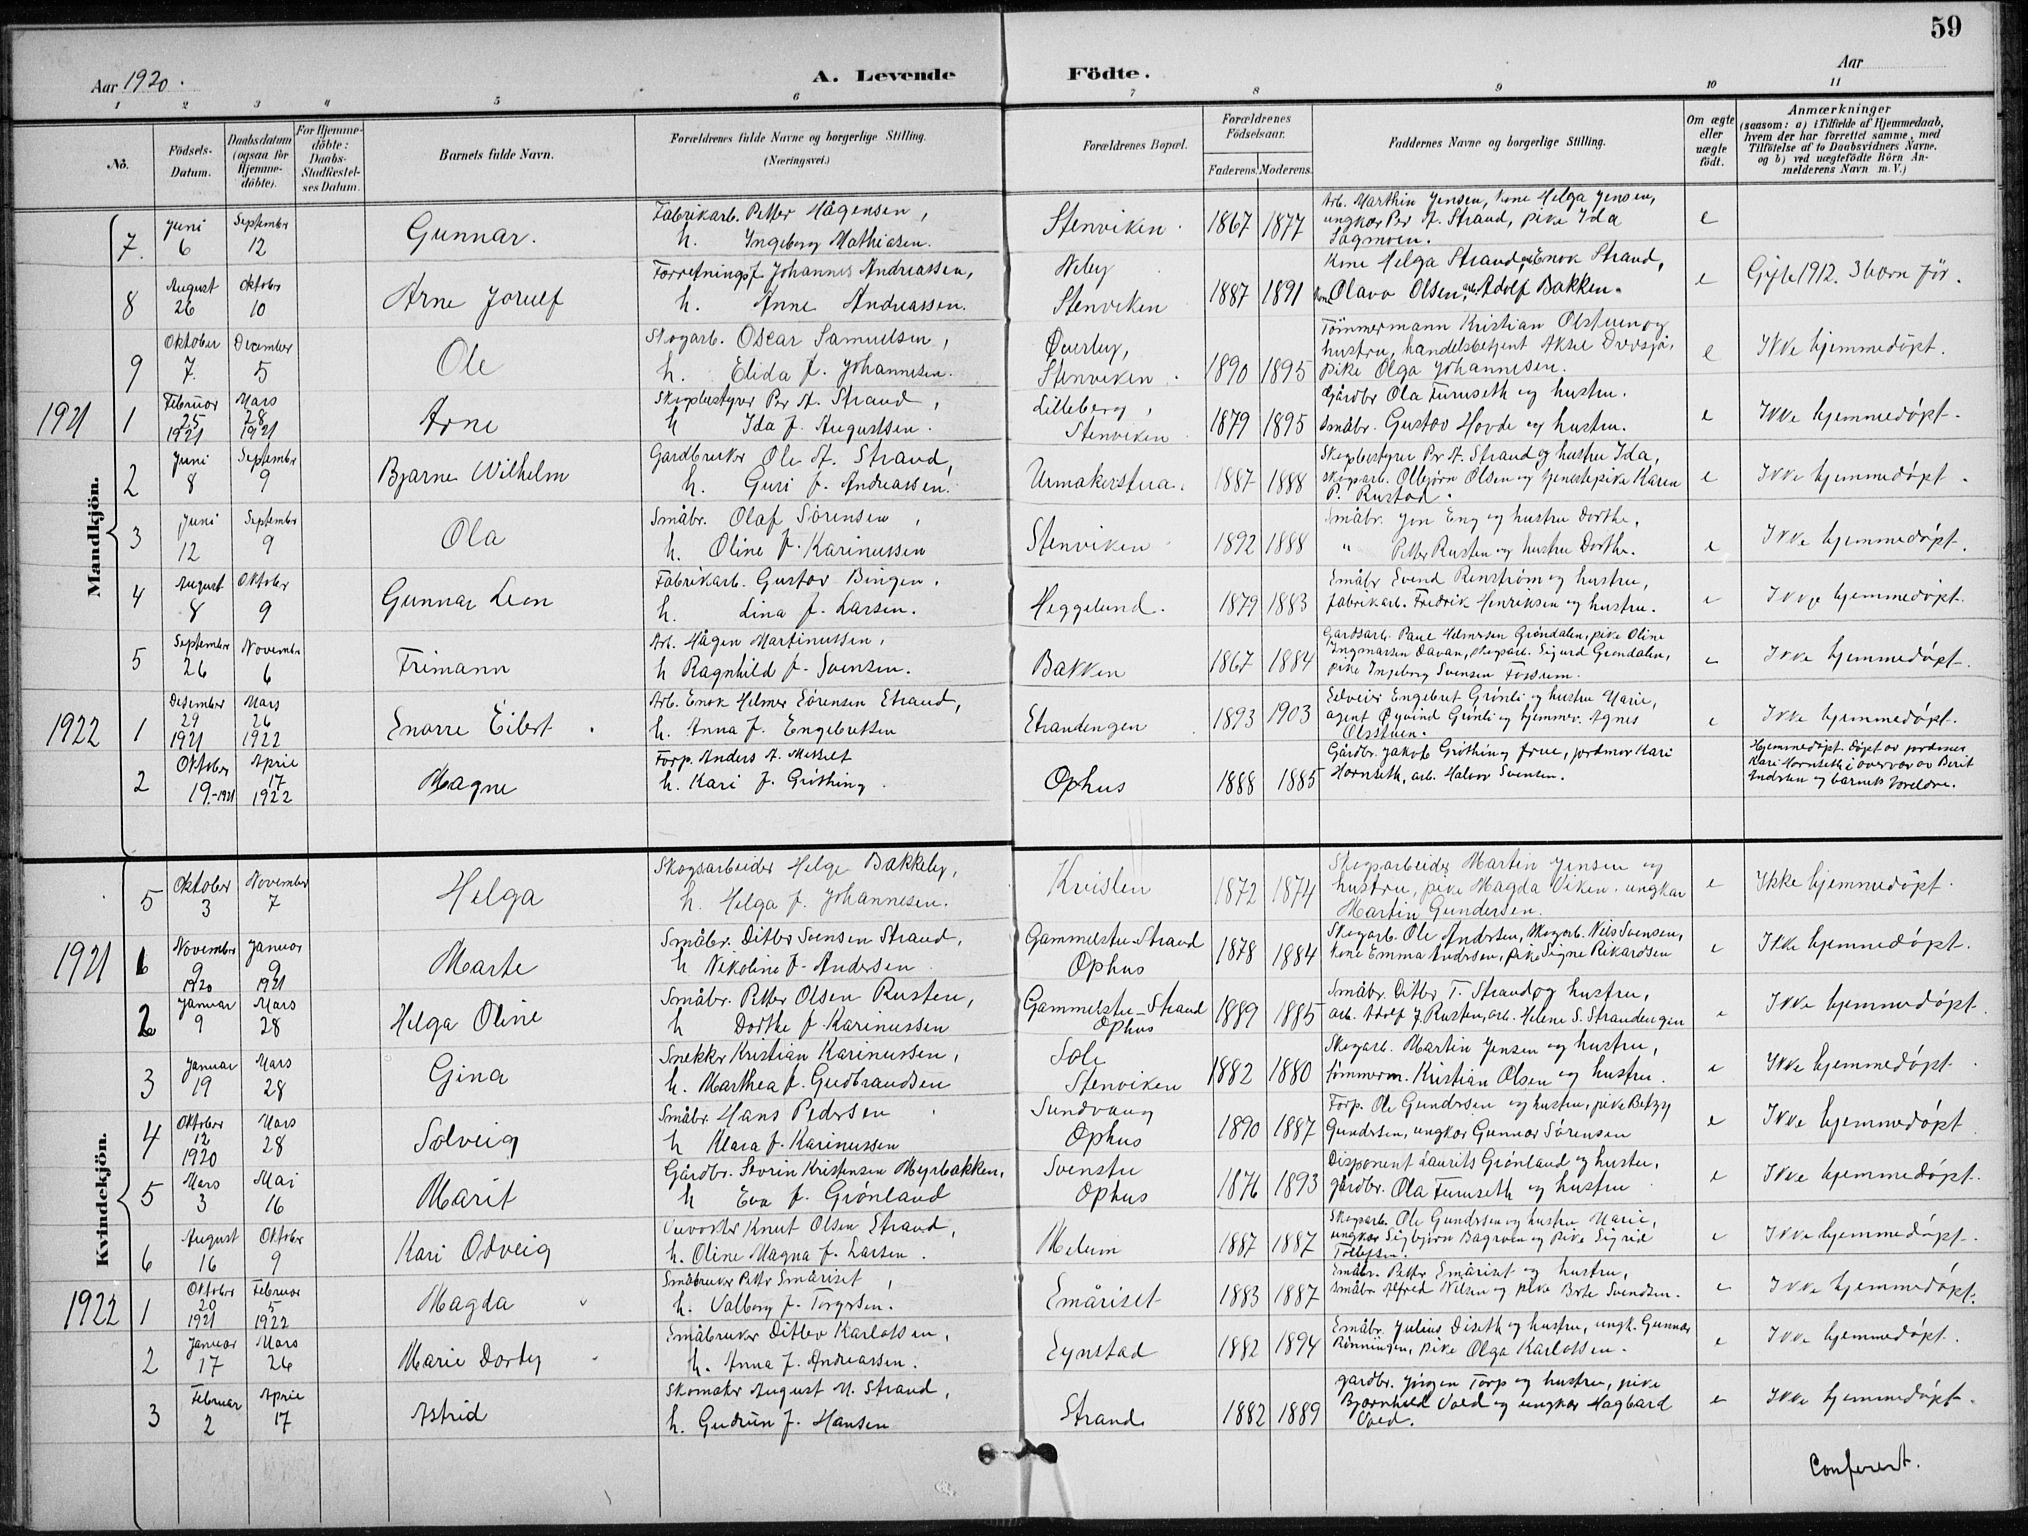 59
Aar 1920.
A. Levende Födte.
Aar
1 2 3 4 5 6 7 8 9 10 11
No.
Födsels-Datum.
Daabsdatum (ogsaa for Hjemmedöbte).
For Hjemmedöbte: Daabs-Stadfæstelses Datum.
Barnets fulde Navn.
Forældrenes fulde Navne og borgerlige Stilling. (Næringsvei.)
Forældrenes Bopæl.
Forældrenes Födselsaar.
Faderens. Moderens.
Faddernes Navne og borgerlige Stilling.
Om ægte eller uægte födt.
Anmærkninger
(saasom: a) i Tilfælde af Hjemmedaab, hvem der har forrettet samme, med Tilföielse af to Daabsvidners Navne. og b) ved uægtefödte Börn Anmelderens Navn m. V.)
Mandkjön.
7. Juni 6 September 12 Gunnar. Fabrikarb. Petter Hågensen, h. Ingeborg Mathiasen. Stenviken. 1867 1877 Arb. Marthin Jensen, kone Helga Jensen, ungkar Per A. Strand, pike Ida Sagmoen. e
8 August 26 Oktober 10 Arne Jorulf Forretningsf. Johannes Andreassen, h. Anne Andreassen. Neby Stenviken 1887 1891 Kone Helga Strand, Enok Strand, Kone Olava Olsen, arb. Adolf Bakken. e Gifte 1912. 3 barn før.
9 Oktober 7. December 5 Ole Skogarb. Oscar Samuelsen, h. Elida f. Johannesen. Øverby, Stenviken. 1890 1895 Tømmermann Kristian Olstuen og hustru, handelsbetjent Aksel, pike Olga Johannesen. e Ikke hjemmedøpt.
1921
1 Februar 25 1921 Mars 28 1921 Arne Skogbestyrer Per A. Strand, h Ida f. Augustsen. Lilleberg, Stenviken 1879 1895 Gårdbr Ola Furuseth og hustru. Småbr. Gustav Hovde og hustru. e Ikke hjemmedøpt.
2 Juni 8 September 9 Bjarne Wilhelm Gardbruker Ole A. Strand, h. Guri f. Andreassen. Urmakerstua. 1887 1888 Skogbestyrer Per A. Strand og hustru Ida, skogsarb. Olbjørn Olsen og tjenestepike Karen P. Rustad. e Ikke hjemmedøpt.
3 Juni 12 September 9 Ola Småbr. Olaf Sørensen, h. Oline f. Karinussen Stenviken 1892 1888 Småbr. Jon Eng og hustru Dorthe, " Petter Rusten og hustru Dorthe. e Ikke hjemmedøpt.
4 August 8 Oktober 9 Gunnar Leon Fabrikarb. Gustav Bingen. h. Lina f. Larsen. Heggelund. 1879 1883 Småbr Svend Renstrøm og hustru, fabrikarb. Fredrik Henriksen og hustru. e Ikke hjemmedøpt.
5 September 26 November 6 Frimann Arb. Hågen Martinussen, h Ragnhild f. Svensen. Bakken 1867 1884 Gardsarb. Paul Helmersen Grøndalen, pike Oline Ingmarsen Davan, skogsarb. Sigurd Grøndalen, pike Ingeborg Svensen Fossum. e Ikke hjemmedøpt.
1922
1 Desember 29 1921 Mars 26 1922 Snorre Eilert. Arb. Enok Helmer Sørensen Strand, h. Anna f. Engebretsen Strandengen 1893 1903 Selveier Engebret Grønli og hustru Marie, agent Øyvind Grønli og hjemmev. Agnes Olsstuen. e Ikke hjemmedøpt.
2 Oktober 19.-1921 April 17 1922 Magne Forp. Anders A. Messelt h. Kari f. Grøthing. Ophus 1888 1885 Gårdbr. Jakob Grøthing frue, jordmor Kari Hornseth, arb. Halvor Svensen. Hjemmedøpt. døpt av jordmor Kari Hornseth i overvær av Berit Indsten og barnets foreldre.
Kvindekjön.
5 Oktober 3 November 7 Helga Skogsarbeider Helge Bakkeby, h. Helga f. Johannesen. Kvislen 1872 1874 Skogsarbeider Martin Jensen og hustru, pike Magda Viken. ungkar Martin Gundersen. e Ikke hjemmedöpt.
1921
1 November 9 1920 Januar 9 1921 Marte Småbr. Ditlev Svensen Strand, h Nikoline f. Andersen. Gammelstu-Strand Ophus 1878 1884 Skogarb. Ole Andersen, skogarb. Nils Svensen, kone Emma Andersen, pike Signe Rikardsen e Ikke hjemmedøpt.
2 Januar 9 Mars 28 Helga Oline Småbr. Petter Olsen Rusten, h Dorthe f. Karinussen Gammelstu-Strand Ophus 1889 1885 Småbr. Ditlev T. Strand og hustru, arb. Adolf J. Rusten, arb. Helene S. Strandengen e Ikke hjemmedøpt.
3 Januar 19 Mars 28 Gina Snekker Kristian Karinussen, h. Marthea f. Gudbrandsen Sole Stenviken 1882 1880 Skogarb. Martin Jensen og hustru, tømmerm. Kristian Olsen og hustru. e Ikke hjemmedøpt.
4 Oktober 12 1920 Mars 28 Solveig Småbr Hans Pedersen h Klara f. Karinussen Sundvang Ophus 1890 1887 Forp. Ole Gundersen og hustru, pike Betzy Gundersen, ungkar Gunnar Sørensen e Ikke hjemmedøpt
5 Mars 3 Mai 16 Marit Gårdbr. Severin Kristensen Myrbakken, h Eva f. Grønland Svenstu Ophus 1876 1893 Disponent Laurits Grønland og hustru, gårdbr. Ola Furuseth og hustru e Ikke hjemmedøpt.
6 August 16 Oktober 9 Kari Odveig Knut Olsen Strand, h. Oline Magna f. Larsen. Melum 1887 1887 Skogsarb. Ole Gundersen og hustru Marie, ungkar Sigbjørn Bagroen og pike Sigrid Tollefsen. e Ikke hjemmedøpt.
1922
1 Oktober 20 1921 Februar 5 1922 Magda Småbruker Petter Småriset, h. Valborg f. Torgersen. Småriset 1883 1887 Småbr. Petter Småriset og hustru, småbr. Alfred Nilsen og pike Berte Svendsen. e Ikke hjemmedøpt.
2 Januar 17 Mars 26 Marie Dorthy Småbruker Ditlev Karlotsen, h. Anna f. Andreassen. Synstad 1882 1894 Småbr. Julius Diseth og hustru, ungk. Gunnar Rønningen, pike Olga Karlotsen. e Ikke hjemmedøpt.
3 Februar 2 April 17 Astrid Skomaker August M. Strand, h. Gudrun f. Hansen Strand 1882 1889 gardbr. Jørgen Torp og hustru, pike Bjørnhild Vold og ungkar Hagbard Vold. e Ikke hjemmedøpt.
Conferert.